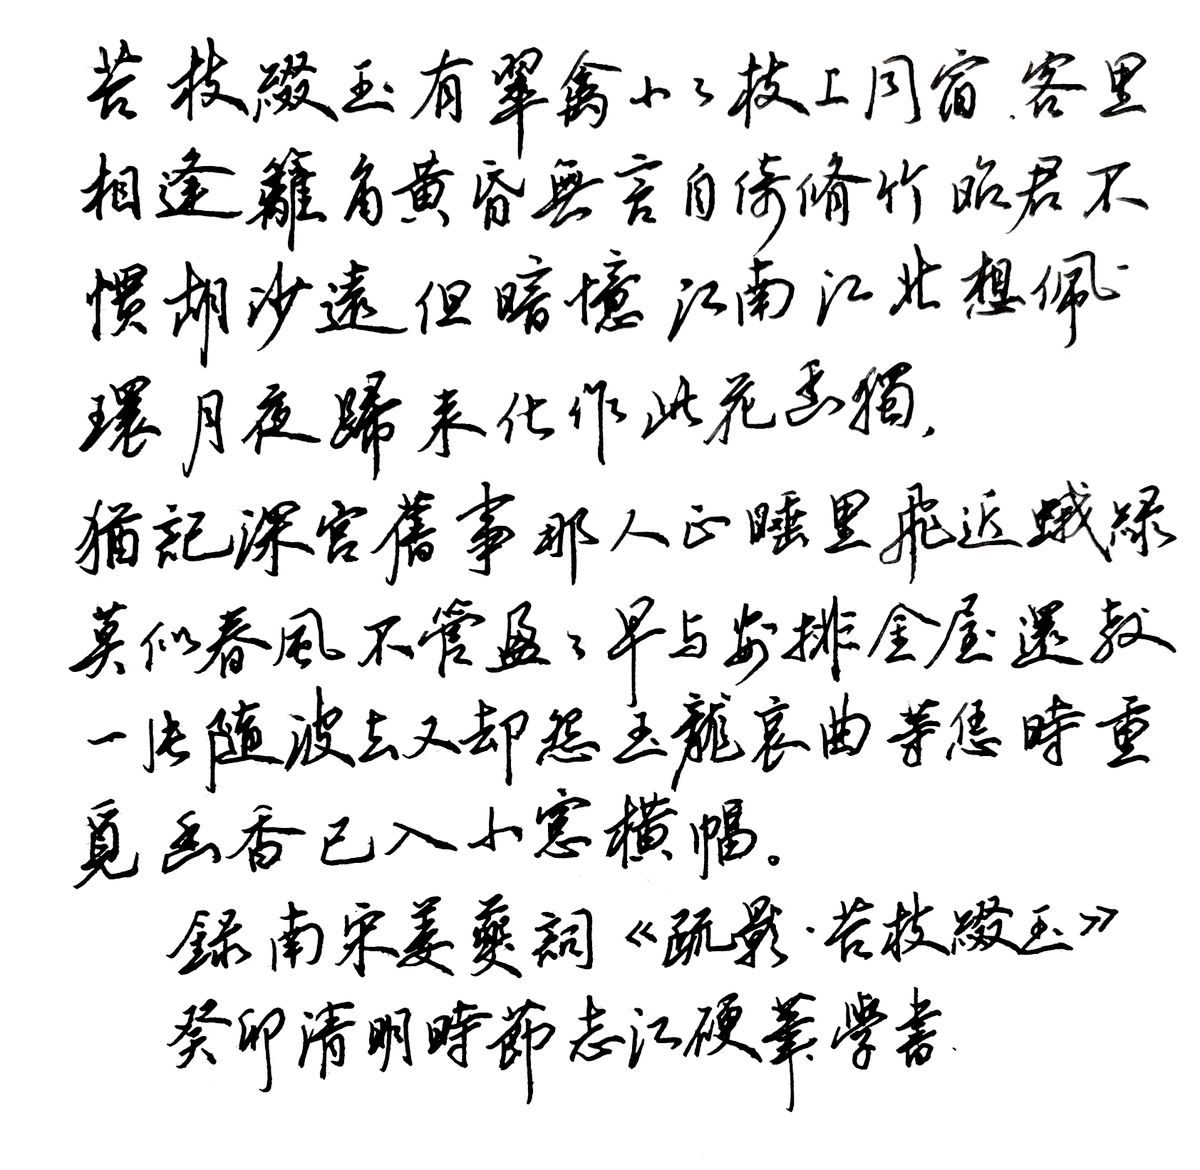 苔枝綴玉有翠禽小々枝上同宿.客里
相逢籬角黄昏無言自倚脩竹昭君不
慣胡沙遠但暗憶江南江北想佩
環月夜歸来化作此花幽獨,
猶記深宫舊事那人正睡里飛近蛾緑
莫似春風不管盈々早与安排金屋還教
一片隨波去又却怨玉龍哀曲等恁時重
覓幽香已入小窓横幅。
録南宋姜夔詞《疏影·苔枝綴玉》
癸卯清明時節志江硬筆學書.